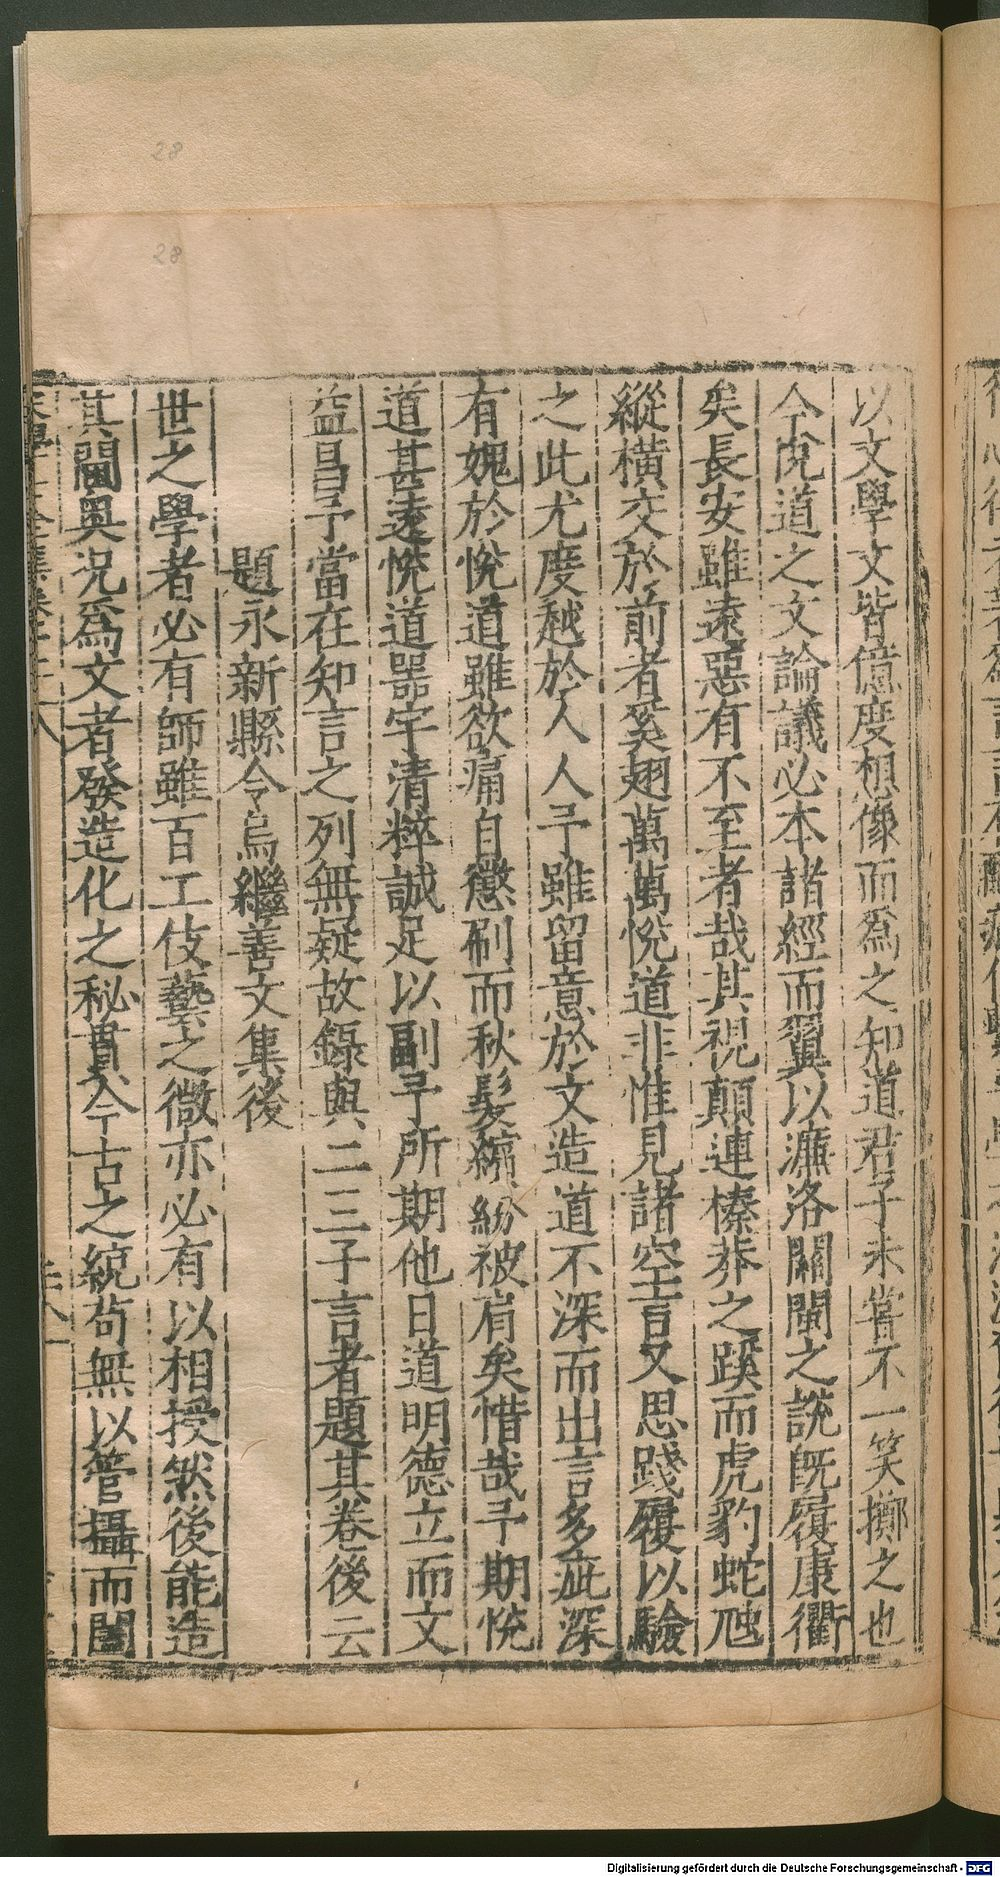 以文學文皆億度想像而爲之知道君子未嘗不一笑擲之也
今悅道之文論議必本諸經而翼以濂洛關閩之說旣履康衢
矣長安雖遠惡有不至者哉其視顛連榛莽之蹊而虎豹蛇虺
縱橫交於前者奚翅萬萬悅道非惟見諸空言又思踐履以驗
之此尤度越於人人予雖留意於文造道不深而出言多疵深
有媿於悅道雖欲痛自懲刷而秋髮繽紛被肩矣惜哉予期悅
道甚遠悅道器宇淸粹誠足以副予所期他日道明德立而文
益昌予當在知言之列無疑故錄與二三子言者題其卷後云
題永新縣令烏繼善文集後
世之學者必有師雖百工伎藝之微亦必有以相授然後能造
其閫奥況爲文者發造化之秘貫今古之統苟無以管攝而闔
28
28
Digitalisierung gefördert durch die Deutsche Forschungsgemeinschaft - DFG